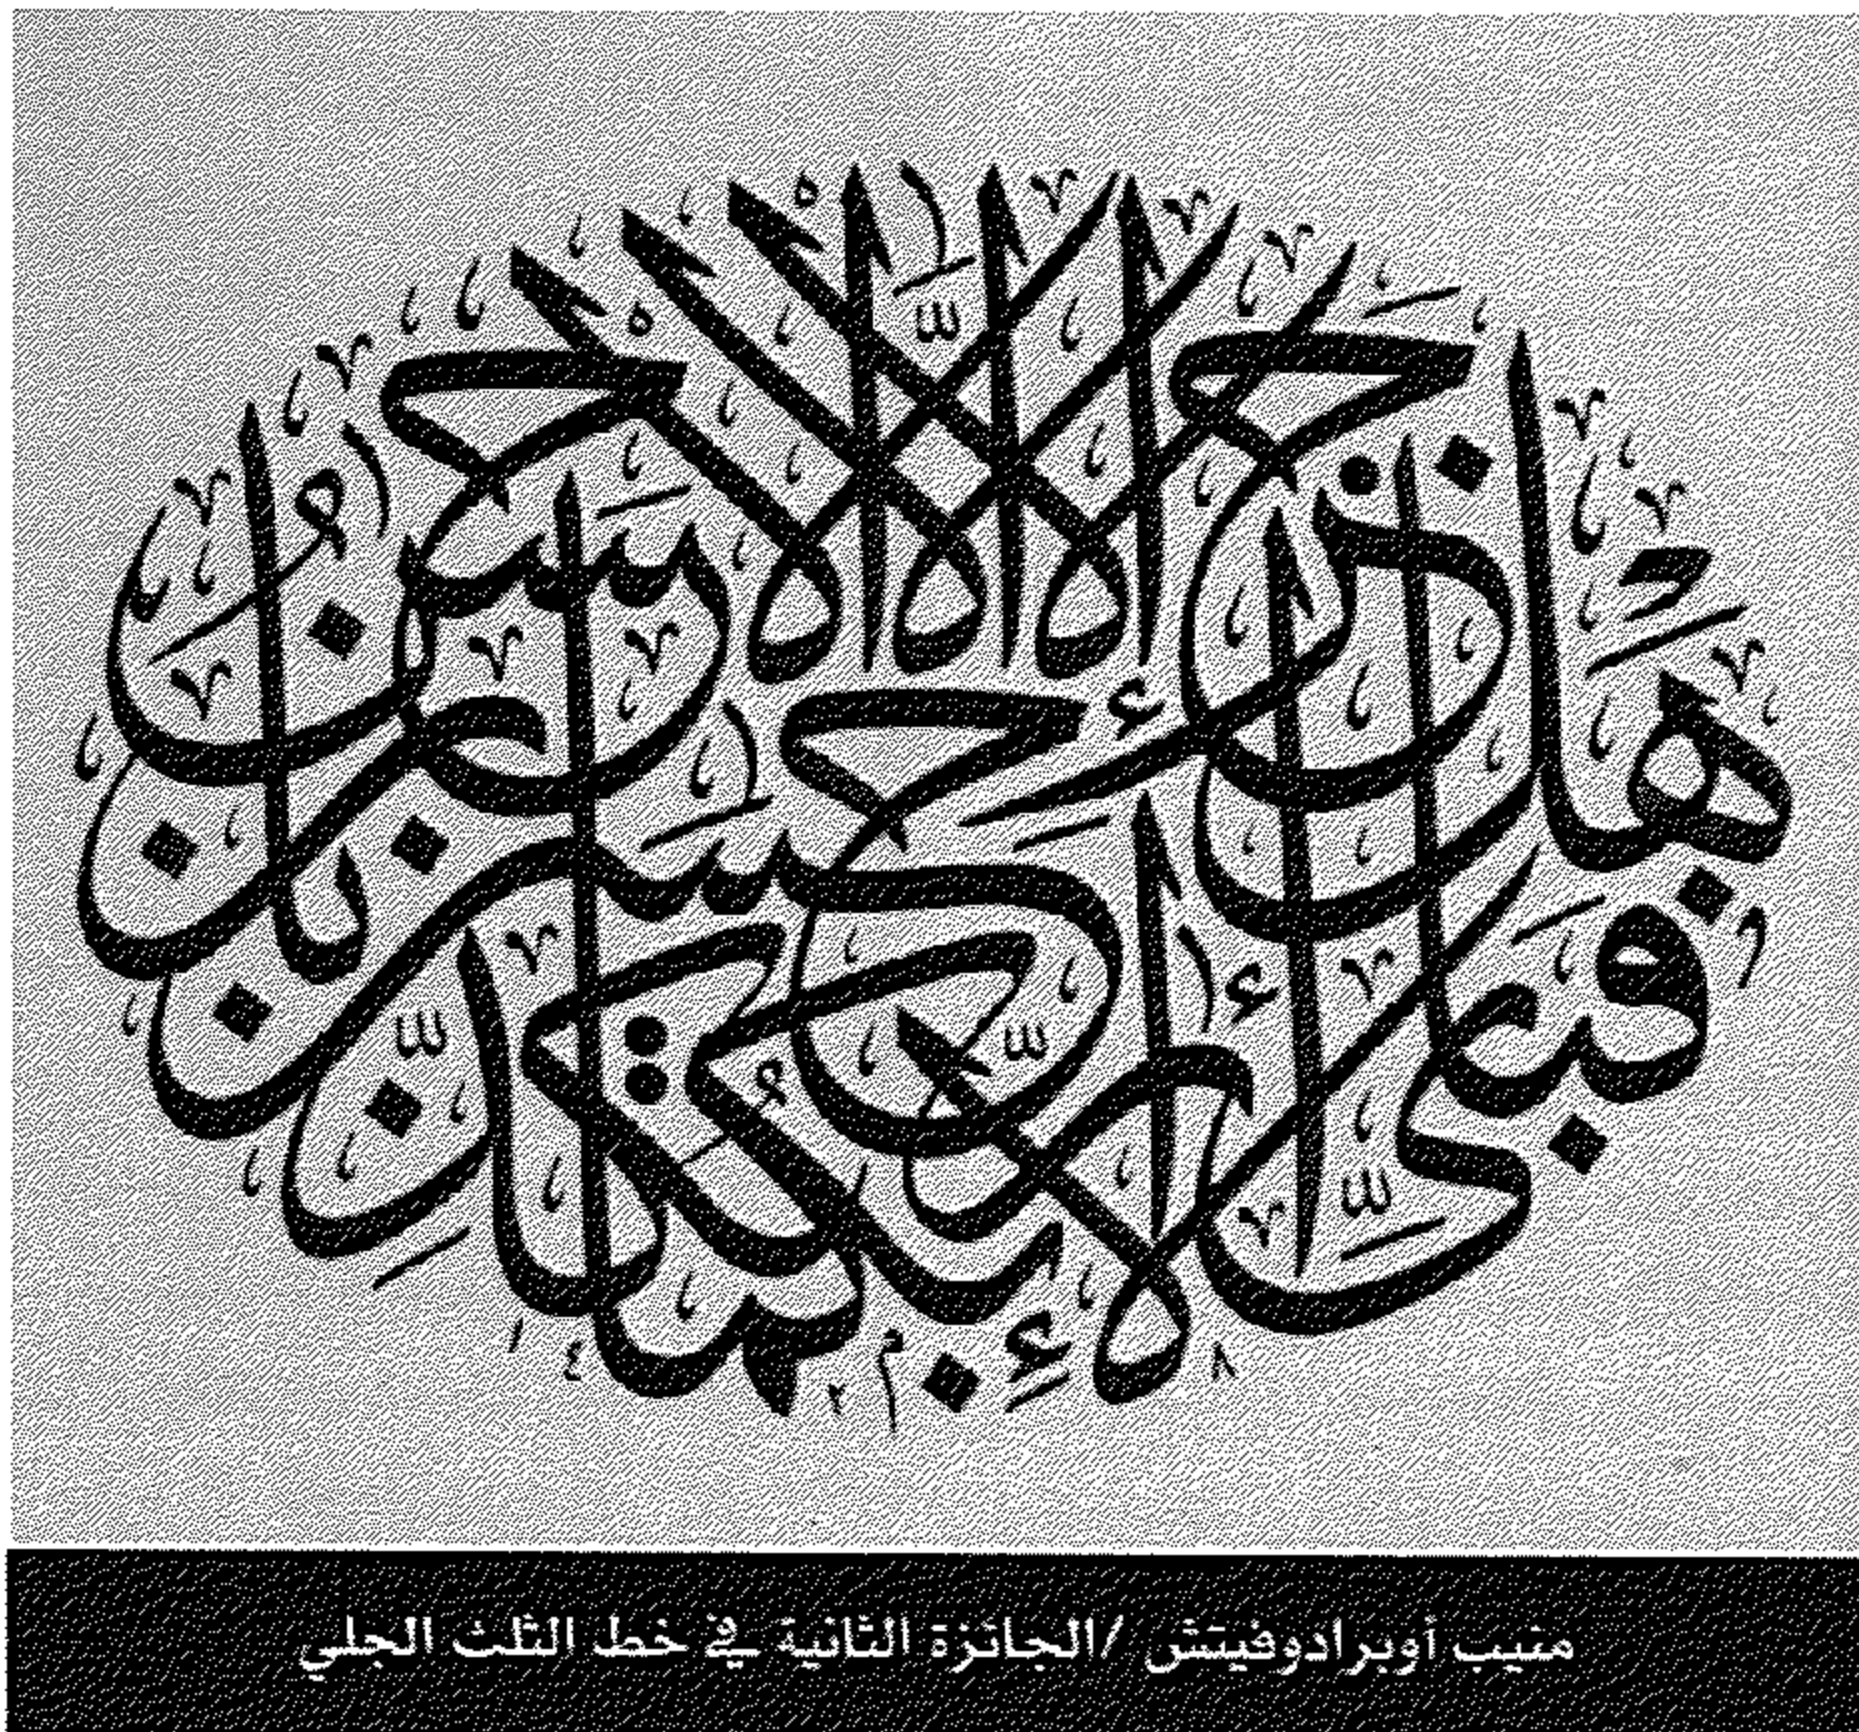 هل جزاء الإحسان إلا الإحسان
فبأي آلاء ربكما تكذبان
منيب أوبرادوفيتش /الجائزة الثانية في خط الثلث الجلي